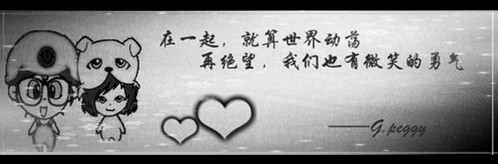 在一起，就算世界动荡
再绝望，我们也有微笑的勇气
——G.peggy